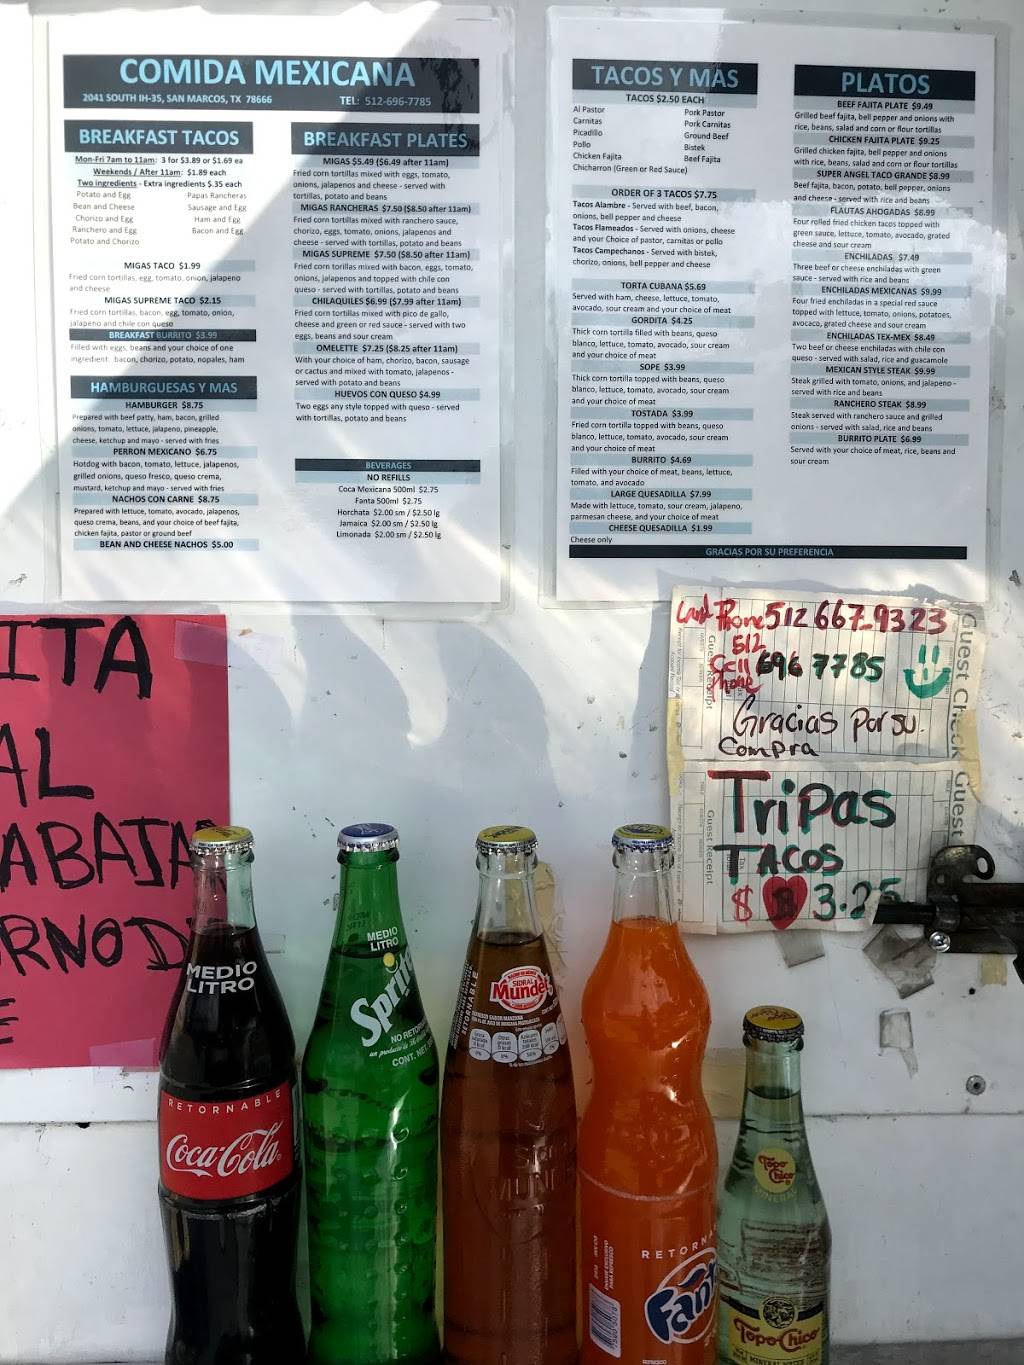 COMIDA MEXICANA
2041 SOUTH IH-35, SAN MARCOS, TX 78666 TEL: 512-696-7785
BREAKFAST TACOS
Mon-Fri 7am to 11am: 3 for $3.89 or $1.69 ea
Weekends / After 11am: $1.89 each
Two ingredients - Extra ingredients $.35 each
Potato and Egg Papas Rancheras
Bean and Cheese Sausage and Egg
Chorizo and Egg Ham and Egg
Ranchero and Egg Bacon and Egg
Potato and Chorizo
MIGAS TACO $1.99
Fried corn tortillas, egg, tomato, onion, jalapeno
and cheese
MIGAS SUPREME TACO $2.15
Fried corn tortillas, bacon, egg, tomato, onion,
jalapeno and chile con queso
BREAKFAST BURRITO $3.99
Filled with eggs, beans and your choice of one
ingredient: bacon, chorizo, potato, nopales, ham
HAMBURGUESAS Y MAS
HAMBURGER $8.75
Prepared with beef patty, ham, bacon, grilled
onions, tomato, lettuce, jalapeno, pineapple,
cheese, ketchup and mayo - served with fries
PERRON MEXICANO $6.75
Hotdog with bacon, tomato, lettuce, jalapenos,
grilled onions, queso fresco, queso crema,
mustard, ketchup and mayo - served with fries
NACHOS CON CARNE $8.75
Prepared with lettuce, tomato, avocado, jalapenos,
queso crema, beans, and your choice of beef fajita,
chicken fajita, pastor or ground beef
BEAN AND CHEESE NACHOS $5.00
BREAKFAST PLATES
MIGAS $5.49 ($6.49 after 11am)
Fried corn tortillas mixed with eggs, tomato,
onions, jalapenos and cheese - served with
tortillas, potato and beans
MIGAS RANCHERAS $7.50 ($8.50 after 11am)
Fried corn tortillas mixed with ranchero sauce,
chorizo, eggs, tomato, onions, jalapenos and
cheese - served with tortillas, potato and beans
MIGAS SUPREME $7.50 ($8.50 after 11am)
Fried corn tortillas mixed with bacon, eggs, tomato,
onions, jalapenos and topped with chile con
queso - served with tortillas, potato and beans
CHILAQUILES $6.99 ($7.99 after 11am)
Fried corn tortillas mixed with pico de gallo,
cheese and green or red sauce - served with two
eggs, beans and sour cream
OMELETTE $7.25 ($8.25 after 11am)
With your choice of ham, chorizo, bacon, sausage
or cactus and mixed with tomato, jalapenos -
served with potato and beans
HUEVOS CON QUESO $4.99
Two eggs any style topped with queso - served
with tortillas, potato and beans
BEVERAGES
NO REFILLS
Coca Mexicana 500ml $2.75
Fanta 500ml $2.75
Horchata $2.00 sm / $2.50 lg
Jamaica $2.00 sm / $2.50 lg
Limonada $2.00 sm / $2.50 lg
TACOS Y MAS
TACOS $2.50 EACH
Al Pastor Pork Pastor
Carnitas Pork Carnitas
Picadillo Ground Beef
Pollo Bistek
Chicken Fajita Beef Fajita
Chicharron (Green or Red Sauce)
ORDER OF 3 TACOS $7.75
Tacos Alambre - Served with beef, bacon,
onions, bell pepper and cheese
Tacos Flameados - Served with onions, cheese
and your Choice of pastor, carnitas or pollo
Tacos Campechanos - Served with bistek,
chorizo, onions, bell pepper and cheese
TORTA CUBANA $5.69
Served with ham, cheese, lettuce, tomato,
avocado, sour cream and your choice of meat
GORDITA $4.25
Thick corn tortilla filled with beans, queso
blanco, lettuce, tomato, avocado, sour cream
and your choice of meat
SOPE $3.99
Thick corn tortilla topped with beans, queso
blanco, lettuce, tomato, avocado, sour cream
and your choice of meat
TOSTADA $3.99
Fried corn tortilla topped with beans, queso
blanco, lettuce, tomato, avocado, sour cream
and your choice of meat
BURRITO $4.69
Filled with your choice of meat, beans, lettuce,
tomato, and avocado
LARGE QUESADILLA $7.99
Made with lettuce, tomato, sour cream, jalapeno,
parmesan cheese, and your choice of meat
CHEESE QUESADILLA $1.99
Cheese only
PLATOS
BEEF FAJITA PLATE $9.49
Grilled beef fajita, bell pepper and onions with
rice, beans, salad and corn or flour tortillas
CHICKEN FAJITA PLATE $9.25
Grilled chicken fajita, bell pepper and onions
with rice, beans, salad and corn or flour tortillas
SUPER ANGEL TACO GRANDE $8.99
Beef fajita, bacon, potato, bell pepper, onions
and cheese - served with rice and beans
FLAUTAS AHOGADAS $8.99
Four rolled fried chicken tacos topped with
green sauce, lettuce, tomato, avocado, grated
cheese and sour cream
ENCHILADAS $7.49
Three beef or cheese enchiladas with green
sauce - served with rice and beans
ENCHILADAS MEXICANAS $9.99
Four fried enchiladas in a special red sauce
topped with lettuce, tomato, onions, potatoes,
avocaco, grated cheese and sour cream
ENCHILADAS TEX-MEX $8.49
Two beef or cheese enchiladas with chile con
queso - served with salad, rice and guacamole
MEXICAN STYLE STEAK $9.99
Steak grilled with tomato, onions, and jalapeno -
served with rice and beans
RANCHERO STEAK $8.99
Steak served with ranchero sauce and grilled
onions - served with salad, rice and beans
BURRITO PLATE $6.99
Served with your choice of meat, rice, beans and
sour cream
GRACIAS POR SU PREFERENCIA
Land Phone 512 667-9323
512
Cell 696 7785
Phone
Gracias Por su.
Compra
Tripas
TACOS
$ 3.25
Guest Check
Guest Receipt
Guest
Guest Receipt
ITA
AL
ABAJA
RNO D
E
MEDIO
LITRO
RETORNABLE
Coca-Cola
MEDIO
LITRO
Sprite
NO RETORNABLE
CONT. NET.
SIDRAL
Mundet
RETORNABLE
RETORNA
Fanta
REFRESCO
Topo
Chico
MINERAL
Topo Chico
MINERAL WATER